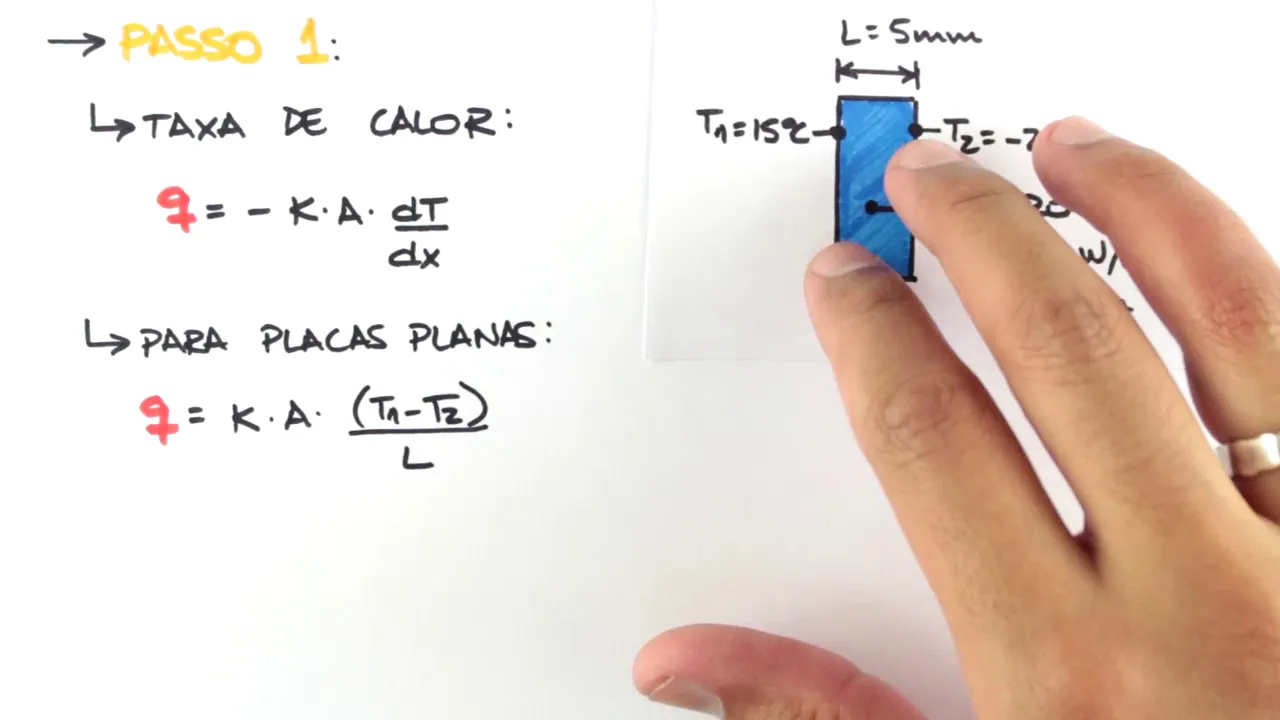 → PASSO 1:
↳ TAXA DE CALOR:
q = - K · A · dT
dx
↳ PARA PLACAS PLANAS:
q = K · A · (T1 - T2)
L
L = 5mm
T1 = 15°C
T2 = -
W/